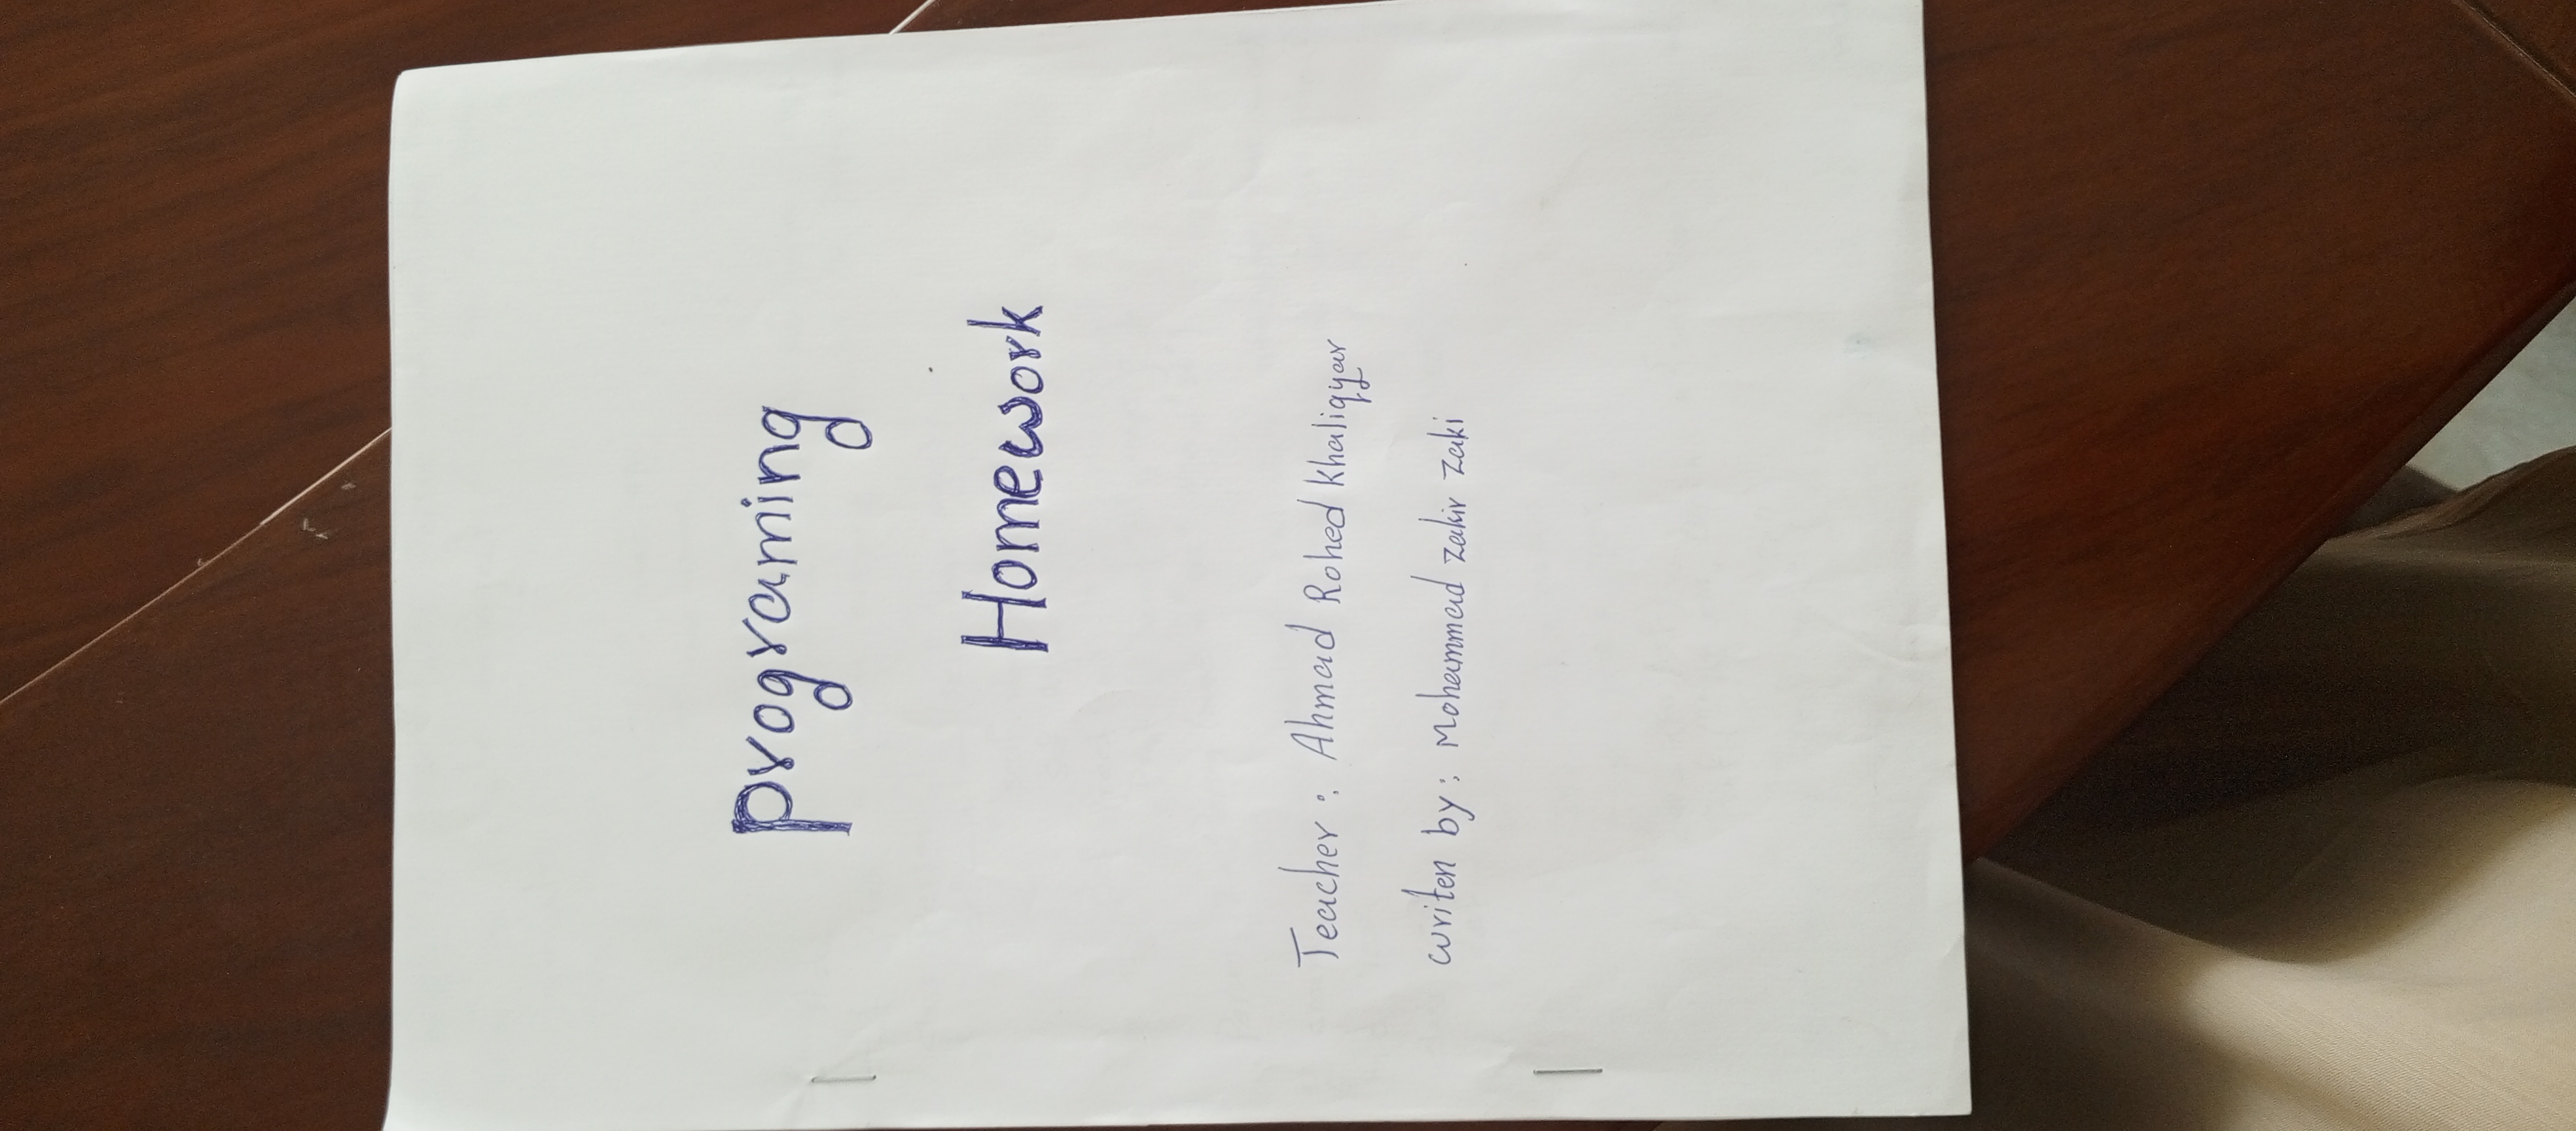 programing
Homework
Teacher : Ahmad Rohed Khaliqyar
writen by : Mohammad zakir zaki